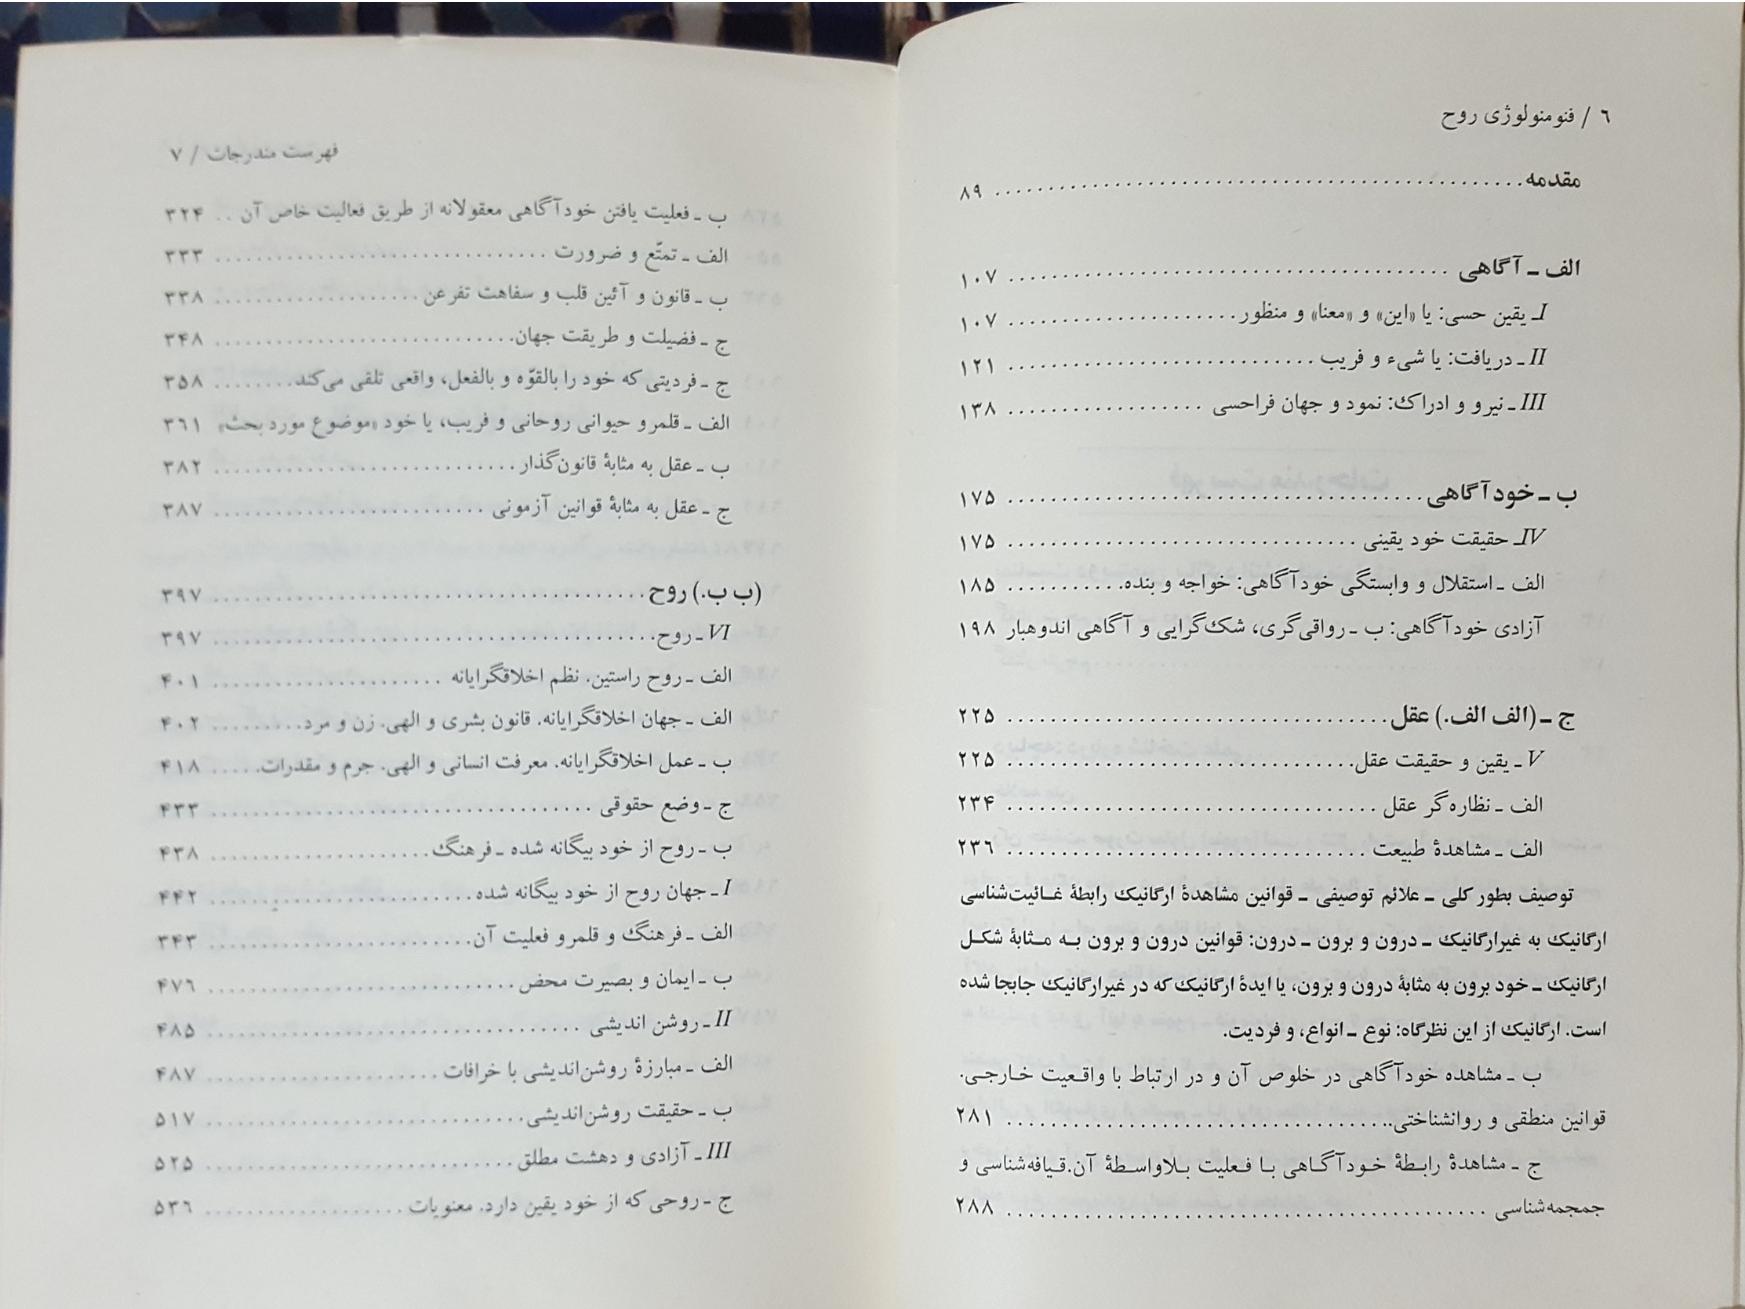 ۶ / فنومنولوژی روح
مقدمه ........ ۸۹
الف ـ آگاهی ........ ۱۰۷
I ـ یقین حسی: یا «این» و «معنا» و منظور ........ ۱۰۷
II ـ دریافت: یا شیء و فریب ........ ۱۲۱
III ـ نیرو و ادراک: نمود و جهان فراحسی ........ ۱۳۸
ب ـ خودآگاهی ........ ۱۷۵
IV ـ حقیقت خود یقینی ........ ۱۷۵
الف ـ استقلال و وابستگی خودآگاهی: خواجه و بنده ........ ۱۸۵
آزادی خودآگاهی: ب ـ رواقی‌گری، شک‌گرایی و آگاهی اندوهبار ۱۹۸
ج ـ (الف الف.) عقل ........ ۲۲۵
V ـ یقین و حقیقت عقل ........ ۲۲۵
الف ـ نظاره‌گر عقل ........ ۲۳۴
الف ـ مشاهدهٔ طبیعت ........ ۲۳۶
توصیف بطور کلی ـ علائم توصیفی ـ قوانین مشاهدهٔ ارگانیک رابطهٔ غـائیت‌شناسی
ارگانیک به غیرارگانیک ـ درون و برون ـ درون: قوانین درون و برون بـه مـثابهٔ شکـل
ارگانیک ـ خود برون به مثابهٔ درون و برون، یا ایدهٔ ارگانیک که در غیرارگانیک جابجا شده
است. ارگانیک از این نظرگاه: نوع ـ انواع، و فردیت.
ب ـ مشاهده خودآگاهی در خلوص آن و در ارتباط با واقـعیت خـارجـی.
قوانین منطقی و روانشناختی ........ ۲۸۱
ج ـ مشاهدهٔ رابـطهٔ خـودآگـاهی بـا فـعلیت بـلاواسـطهٔ آن.قـیافه‌شناسی و
جمجمه‌شناسی ........ ۲۸۸
فهرست مندرجات / ۷
ب ـ فعلیت یافتن خودآگاهی معقولانه از طریق فعالیت خاص آن .. ۳۲۴
الف ـ تمتّع و ضرورت ........ ۳۳۳
ب ـ قانون و آئین قلب و سفاهت تفرعن ........ ۳۳۸
ج ـ فضیلت و طریقت جهان ........ ۳۴۸
ج ـ فردیتی که خود را بالقوّه و بالفعل، واقعی تلقی می‌کند ........ ۳۵۸
الف ـ قلمرو حیوانی روحانی و فریب، یا خود «موضوع مورد بحث» ۳۶۱
ب ـ عقل به مثابهٔ قانون‌گذار ........ ۳۸۲
ج ـ عقل به مثابهٔ قوانین آزمونی ........ ۳۸۷
(ب ب.) روح ........ ۳۹۷
VI ـ روح ........ ۳۹۷
الف ـ روح راستین. نظم اخلاقگرایانه ........ ۴۰۱
الف ـ جهان اخلاقگرایانه. قانون بشری و الهی. زن و مرد ........ ۴۰۲
ب ـ عمل اخلاقگرایانه. معرفت انسانی و الهی. جرم و مقدرات ..... ۴۱۸
ج ـ وضع حقوقی ........ ۴۳۳
ب ـ روح از خود بیگانه شده ـ فرهنگ ........ ۴۳۸
I ـ جهان روح از خود بیگانه شده ........ ۴۴۲
الف ـ فرهنگ و قلمرو فعلیت آن ........ ۳۴۳
ب ـ ایمان و بصیرت محض ........ ۴۷۶
II ـ روشن اندیشی ........ ۴۸۵
الف ـ مبارزهٔ روشن‌اندیشی با خرافات ........ ۴۸۷
ب ـ حقیقت روشن‌اندیشی ........ ۵۱۷
III ـ آزادی و دهشت مطلق ........ ۵۲۵
ج ـ روحی که از خود یقین دارد. معنویات ........ ۵۳۶